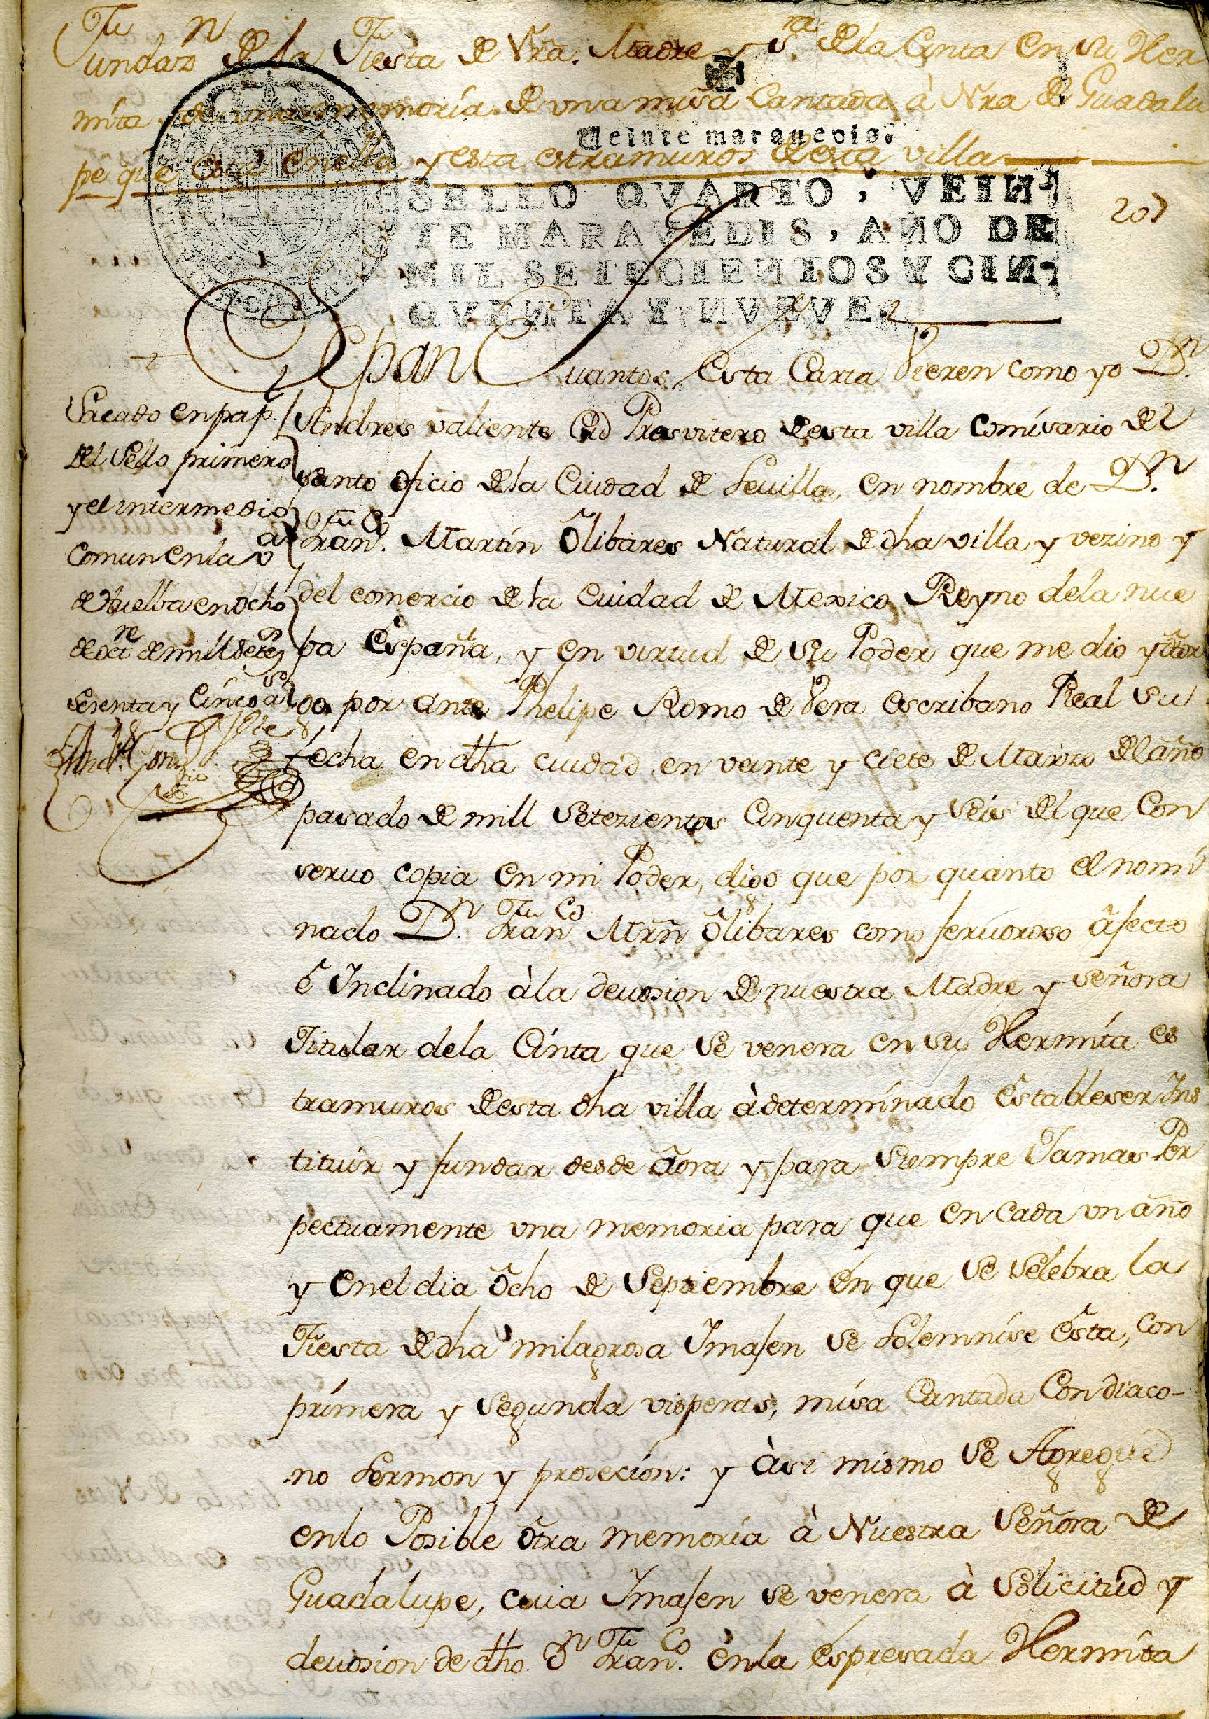 Fundaz.n de la Fiesta de Nra. Madre y S.ra de la Cinta en su Her
mita, de una memoria de una misa Cantada à Nra de Guadalu
pe que está en ella, y esta estramuros desta villa
Veinte maravedis.
SELLO QVARTO, VEIN-
TE MARAVEDIS, AÑO DE
MIL SETECIENTOS Y CIN-
QVENTA Y NUEVE.
207
Sepan Cuantos Esta Carta Vieren como yo D.n
Andres valiente Presvitero desta villa comisario del
santo oficio de la Ciudad de Sevilla, en nombre de D.n
Fran.co Martin Olibares Natural de dha villa, y vezino y
del comercio de la Ciudad de Mexico, Reyno de la nue
ba España, y en virtud de su Poder que me dio y otor
go por ante Phelipe Romo de Vera escribano Real su
fecha en dha ciudad en veinte y ciete de Marzo del año
pasado de mill setezientos Cinquenta y seis del que Con
servo copia en mi Poder, digo que por quanto el nomi
nado D.n Fran.co Mrñ Olibares como fervoroso afecto
ê Inclinado à la devosion de nuestra Madre y señora
Titular de la Cinta que se venera en su Hermita es
tramuros desta dha villa à determinado Establecer Ins
tituir y fundar desde aora y para siempre Jamas Per
pectuamente una memoria para que en Cada un año
y en el dia ôcho de Septiembre en que se selebra la
Fiesta de dha milagrosa Imajen se solemnise ésta, con
primera y segunda visperas, misa Cantada Con diaco-
no sermon y prosecion: y à si mismo se Agregue
en lo Posible ôtra memoria à Nuestra Señora de
Guadalupe, cuia Imajen se venera à solicitud y
devosion de dho D.n Fran.co en la espresada Hermita
Sacado en pap.
del sello primero
y el intermedio
comun en la v.a
de Huelba en ocho
de oct.re de mill setez.s
sesenta y cinco a.s